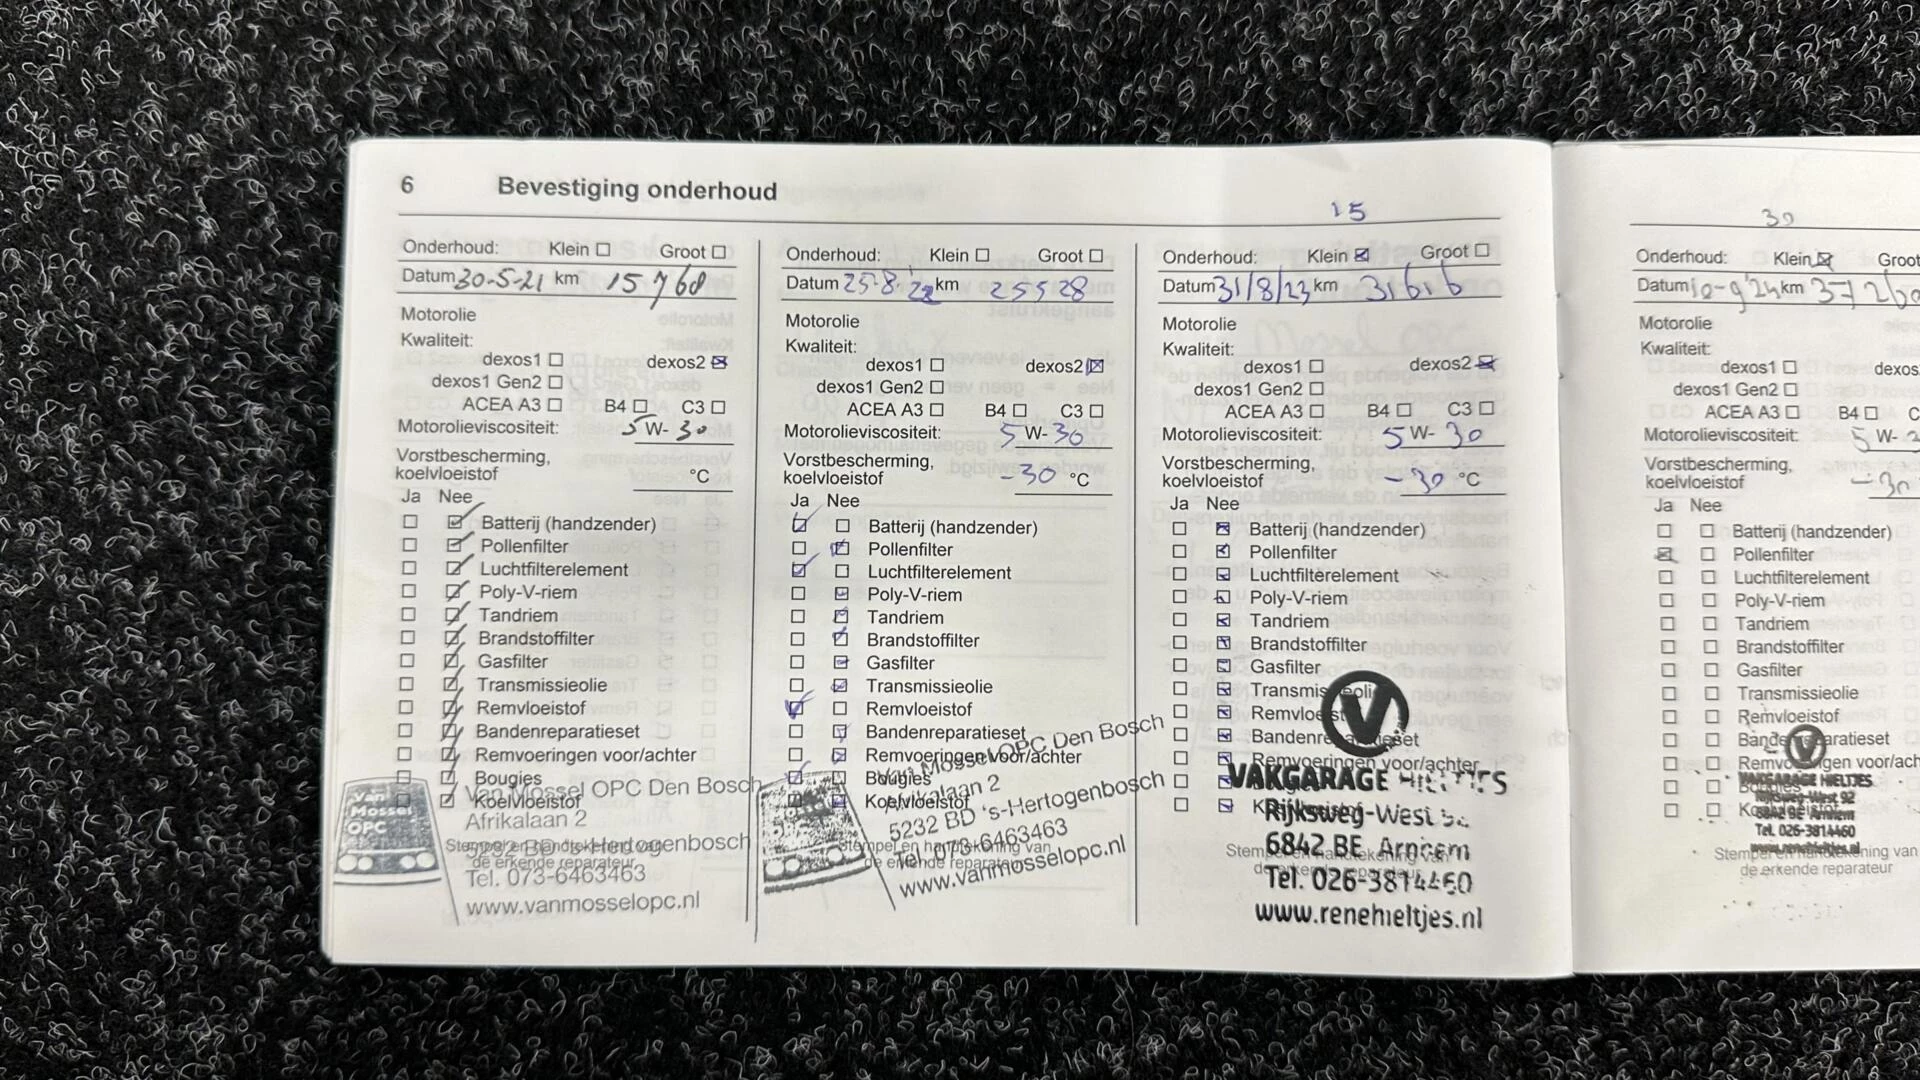 6 Bevestiging onderhoud
Onderhoud: Klein Groot
Datum 30-5-21 km 15768
Motorolie
Kwaliteit:
dexos1 dexos2
dexos1 Gen2
ACEA A3 B4 C3
Motorolieviscositeit: 5 W- 30
Vorstbescherming,
koelvloeistof °C
Ja Nee
Batterij (handzender)
Pollenfilter
Luchtfilterelement
Poly-V-riem
Tandriem
Brandstoffilter
Gasfilter
Transmissieolie
Remvloeistof
Bandenreparatieset
Remvoeringen voor/achter
Bougies
Koelvloeistof
Van Mossel OPC
Van Mossel OPC Den Bosch
Afrikalaan 2
5232 BD 's-Hertogenbosch
Tel. 073-6463463
www.vanmosselopc.nl
Stempel en handtekening van
de erkende reparateur
Onderhoud: Klein Groot
Datum 25-8-'22 km 25528
Motorolie
Kwaliteit:
dexos1 dexos2
dexos1 Gen2
ACEA A3 B4 C3
Motorolieviscositeit: 5 W- 30
Vorstbescherming,
koelvloeistof -30 °C
Ja Nee
Batterij (handzender)
Pollenfilter
Luchtfilterelement
Poly-V-riem
Tandriem
Brandstoffilter
Gasfilter
Transmissieolie
Remvloeistof
Bandenreparatieset
Remvoeringen voor/achter
Bougies
Koelvloeistof
Van Mossel OPC Den Bosch
Afrikalaan 2
5232 BD 's-Hertogenbosch
Tel. 073-6463463
www.vanmosselopc.nl
Stempel en handtekening van
de erkende reparateur
15
Onderhoud: Klein Groot
Datum 31/8/23 km 31616
Motorolie
Kwaliteit:
dexos1 dexos2
dexos1 Gen2
ACEA A3 B4 C3
Motorolieviscositeit: 5 W- 30
Vorstbescherming,
koelvloeistof -30 °C
Ja Nee
Batterij (handzender)
Pollenfilter
Luchtfilterelement
Poly-V-riem
Tandriem
Brandstoffilter
Gasfilter
Transmissieolie
Remvloeistof
Bandenreparatieset
Remvoeringen voor/achter
V
VAKGARAGE HIELTJES
Rijksweg-West
6842 BE Arnhem
Tel. 026-3814460
www.renehieltjes.nl
Stempel en handtekening van
30
Onderhoud: Klein Groot
Datum 10-9'24 km 37260
Motorolie
Kwaliteit:
dexos1 dexos
dexos1 Gen2
ACEA A3 B4 C
Motorolieviscositeit: 5 W-
Vorstbescherming,
koelvloeistof -30
Ja Nee
Batterij (handzender)
Pollenfilter
Luchtfilterelement
Poly-V-riem
Tandriem
Brandstoffilter
Gasfilter
Transmissieolie
Remvloeistof
Bandenreparatieset
Remvoeringen voor/ach
V
VAKGARAGE HIELTJES
Rijksweg-West 92
6842 BE Arnhem
Tel. 026-3814460
www.renehieltjes.nl
Stempel en handtekening van
de erkende reparateur